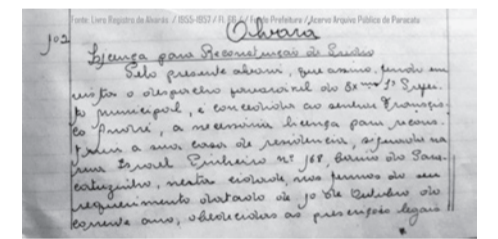 Fonte: Livro Registro de Alvarás / 1955-1957 / Fl. 68 / Fundo Prefeitura / Acervo Arquivo Público de Paracatu
Alvará
102
Licença para Reconstrução de Prédio
Pelo presente alvará, que assino, tendo em
vista o despacho favoravel do Exmo Sr Prefei-
to municipal, é concedida ao senhor Francis-
co André, a necessária licença para recons-
truir a sua casa de residencia, situada na
rua Israel Pinheiro nº 168, bairro do
nesta cidade, nos termos do seu
requerimento datado de 10 de Outubro do
corrente ano, obedecidas as prescrições legais